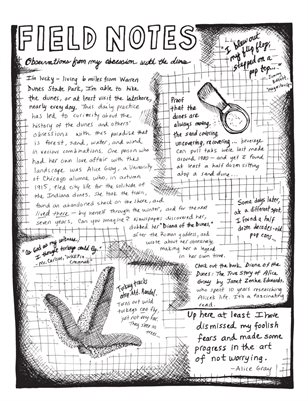 FIELD NOTES
Observations from my obsession with the dunes
I'm lucky - living 10 miles from Warren
Dunes State Park, I'm able to hike
the dunes, or at least visit the lakeshore,
nearly every day. This daily practice
has led to curiosity about the
history of the dunes and others'
obsessions with this paradise that
is forest, sand, water, and wind
in various combinations. One person who
had her own love affair with this
landscape was Alice Gray, a University
of Chicago alumna who, in autumn
1915, fled city life for the solitude of
the Indiana dunes. She took the train,
found an abandoned shack on the shore, and
lived there - by herself through the winter, and for the next
seven years. Can you imagine? Newspapers discovered her,
dubbed her "Diana of the Dunes,"
after the Roman goddess, and
wrote about her constantly,
making her a legend
in her own time.
I blew out
my flip flop,
stepped on a
pop top...
- Jimmy
Buffett,
"Margaritaville"
Proof
that the
dunes are
always moving,
the sand covering,
uncovering, recovering - beverage
can pull tabs were last made
around 1980 - and yet I found
at least a half dozen sitting
atop a sand dune.
Some days later,
at a different spot,
I found a half
dozen decades-old
pop cans...
Check out the book, Diana of the
Dunes: The True Story of Alice
Gray by Janet Zenke Edwards,
who spent 10 years researching
Alice's life. It's a fascinating
read.
"As God as my witness,
I thought turkeys could fly."
- Mr. Carlson, WKRP in
Cincinnati
Turkey tracks
Turns out wild
turkeys can fly,
just not very far.
Up here, at least I have
dismissed my foolish
fears and made some
progress in the art
of not worrying.
-Alice Gray